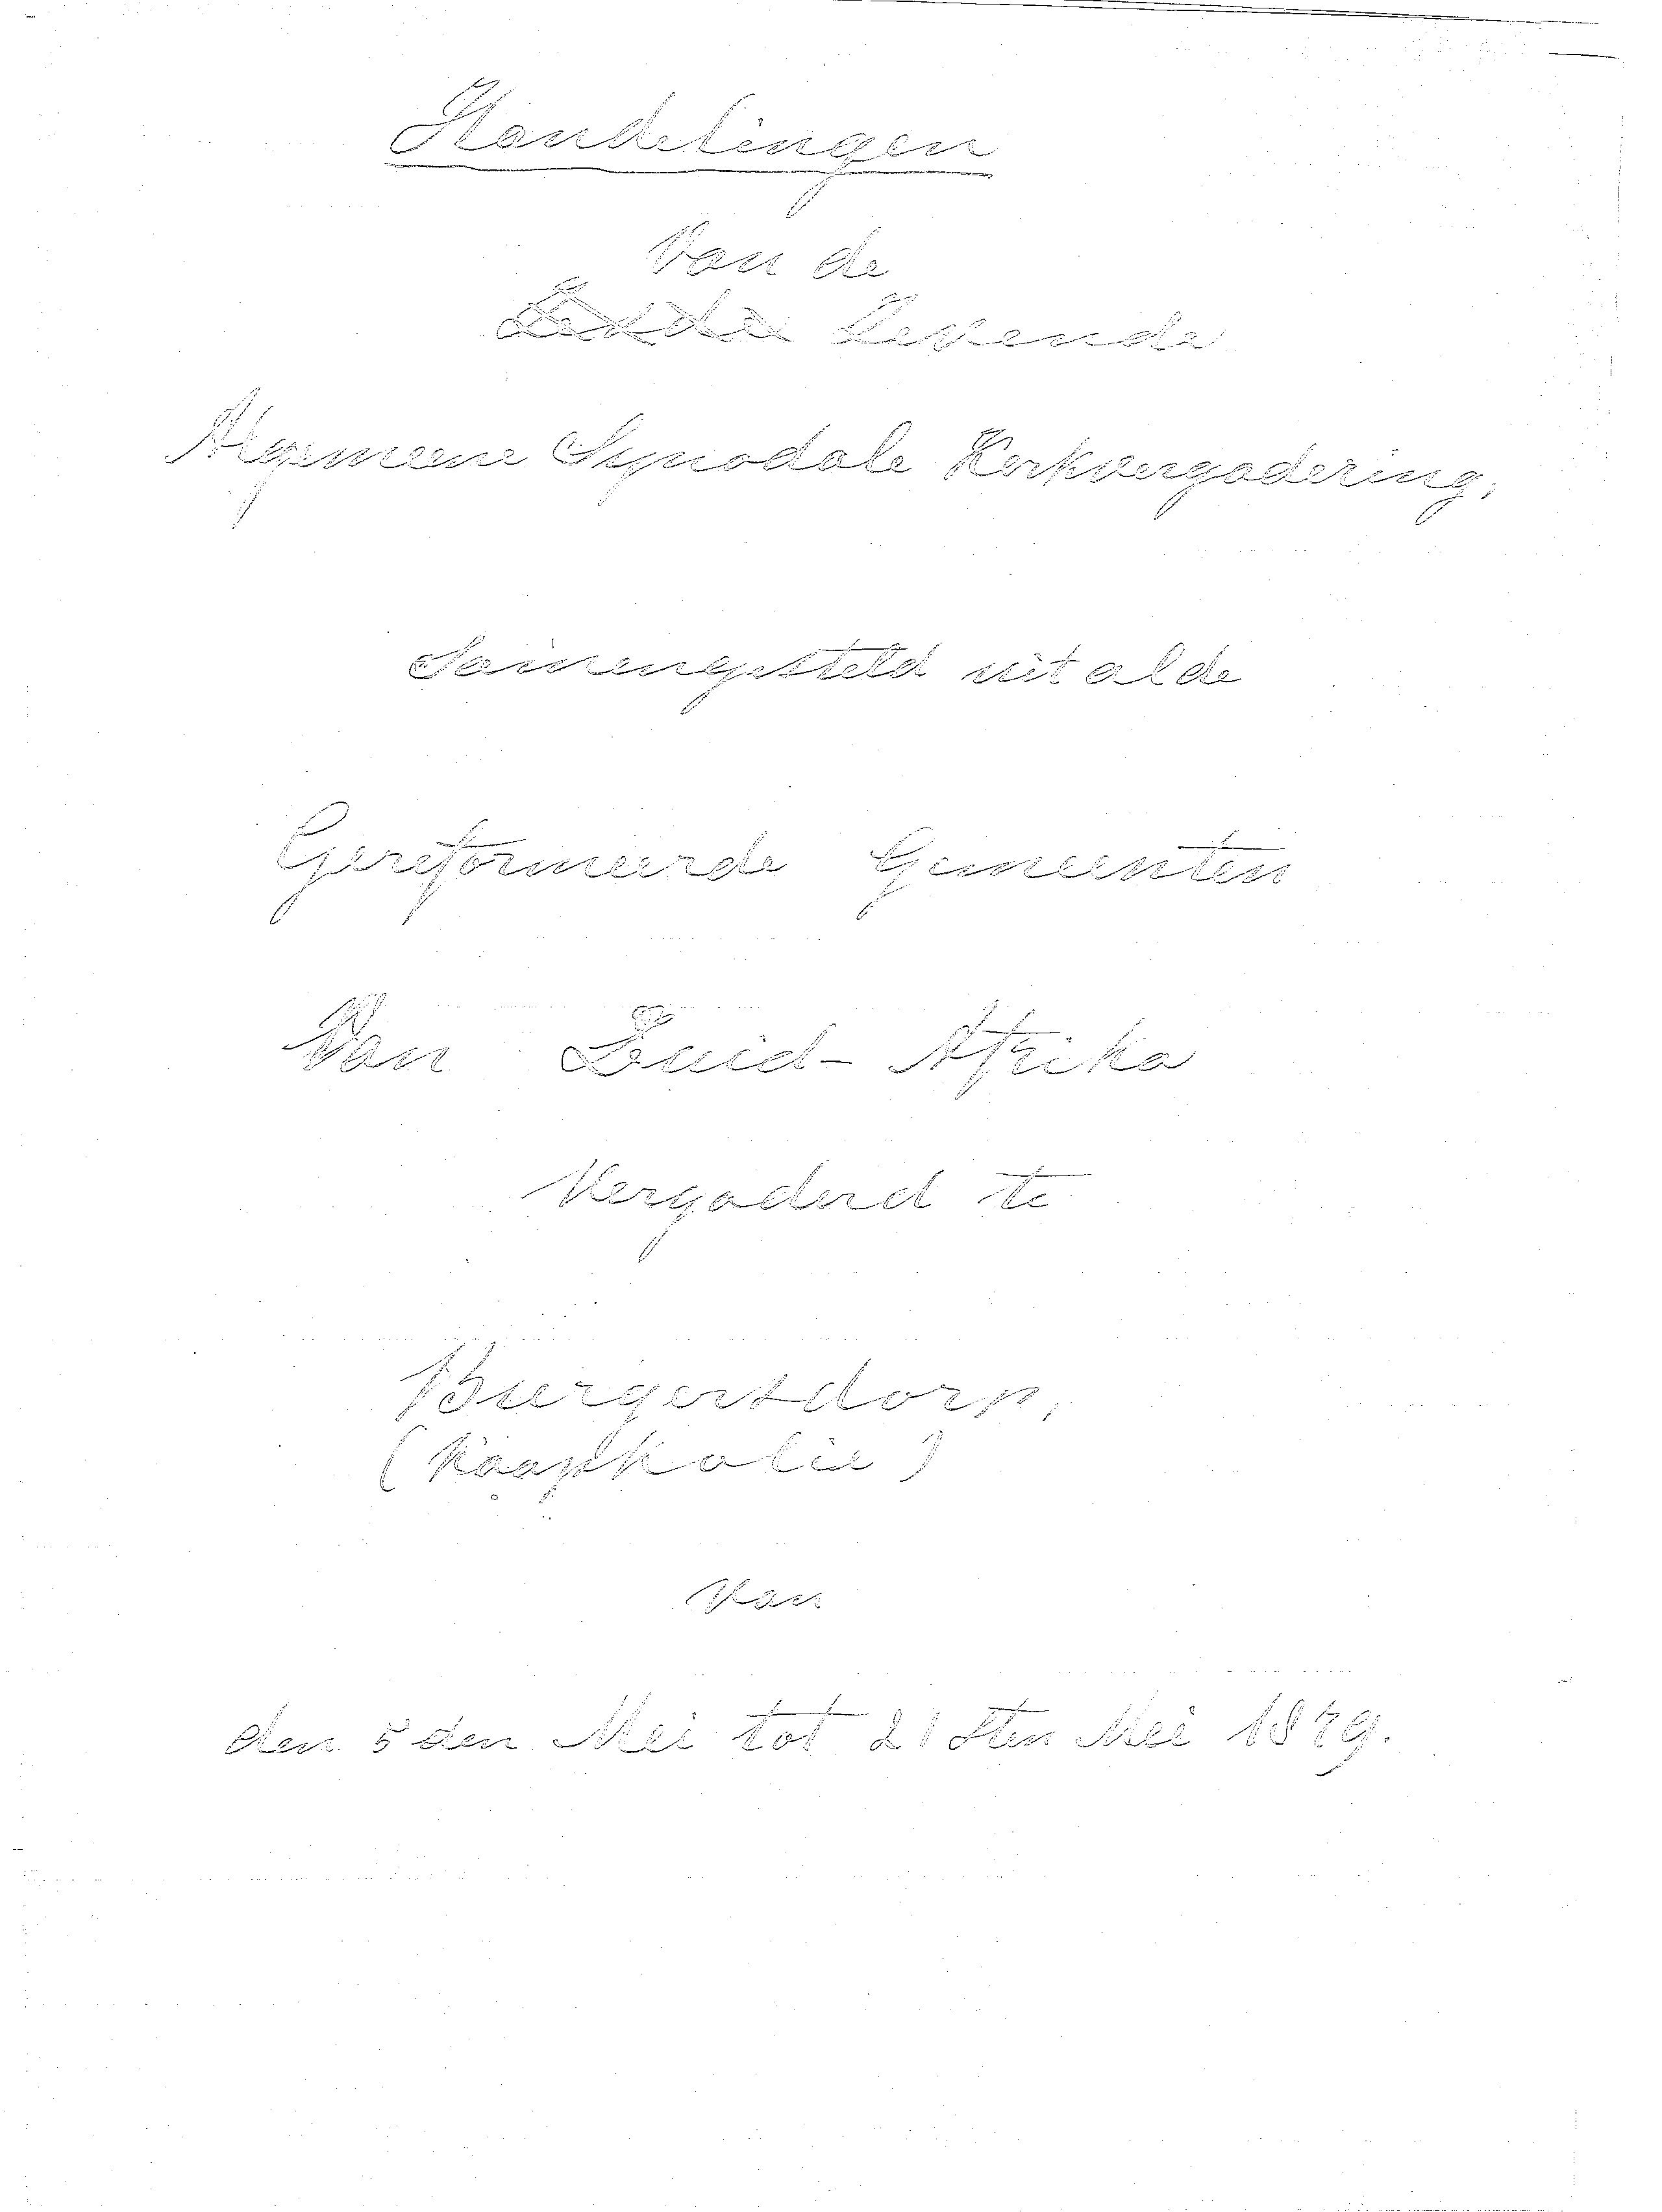 Handelingen
Van de
Zevende
Algemeene Synodale Kerkvergadering,
Samengesteld uit al de
Gereformeerde Gemeenten
Van Zuid-Afrika
Vergaderd te
Burgersdorp,
(Kaapkolie)
van
den 5 den Mei tot 21 sten Mei 1879.